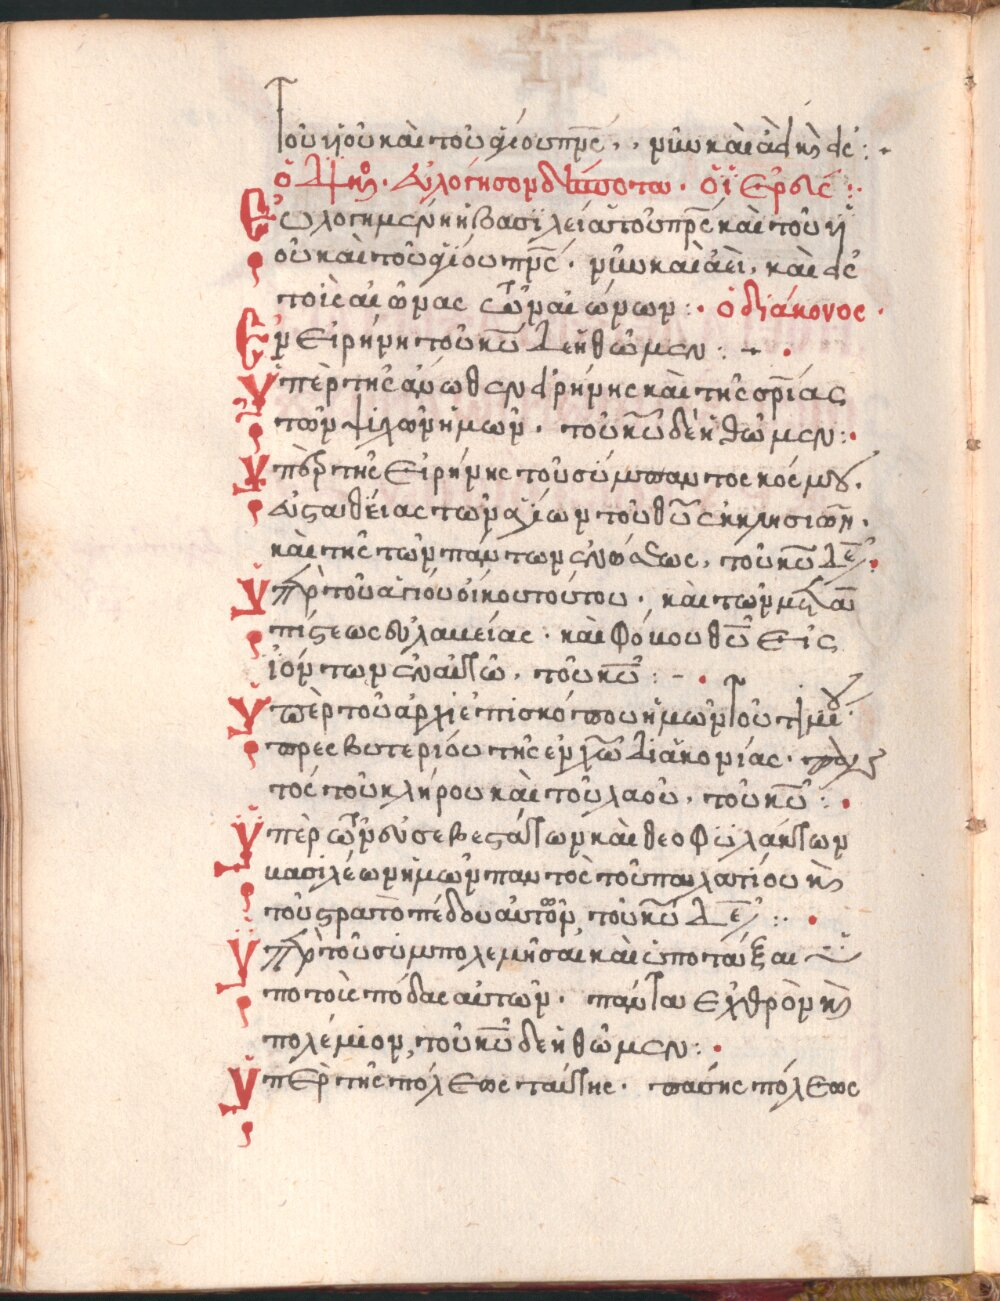 τοῦ υἱοῦ καὶ τοῦ ἁγίου πν̅ς̅, νῦν καὶ ἀεὶ κ̀ εἰς
ὁ διάκονος. εὐλόγησον δέσποτα. ὁ ἱερεὺς :
Εὐλογημένη ἡ βασιλεία τοῦ πρ̅ς̅ καὶ τοῦ υἱ
οῦ καὶ τοῦ ἁγίου πν̅ς̅. νῦν καὶ ἀεὶ. καὶ εἰς
τοὺς αἰῶνας τῶν αἰώνων : ὁ διάκονος
Ἐν εἰρήνη τοῦ κ̅υ̅ δεηθῶμεν :
Ὑπὲρ τῆς ἄνωθεν εἰρήνης καὶ τῆς σρ̅ίας
τῶν ψυχῶν ἡμῶν. τοῦ κ̅υ̅ δεηθῶμεν :
Ὑπὲρ τῆς εἰρήνης τοῦ σύμπαντος κόσμου.
εὐσταθείας τῶν ἁγίων τοῦ θ̅υ̅ ἐκκλησιῶν.
καὶ τῆς τῶν πάντων ἑνώσεως, τοῦ κ̅υ̅ δε
Ὑπὲρ τοῦ ἁγίου οἴκου τούτου. καὶ τῶν μετὰ
πίστεως εὐλαβείας. καὶ φόβου θ̅υ̅ εἰς
ιόντων ἐν αὐτῶ. τοῦ κ̅υ̅ :
Ὑπὲρ τοῦ ἀρχιεπισκόπου ἡμῶν τοῦ τιμίου
πρεσβυτερίου τῆς ἐν χ̅ω̅ διακονίας. παν
τός τοῦ κλήρου καὶ τοῦ λαοῦ, τοῦ κ̅υ̅ :
Ὑπὲρ τῶν εὐσεβεστάτων καὶ θεοφυλάκτων
βασιλέων ἡμῶν παντὸς τοῦ παλατίου κ̀
τοῦ στρατοπέδου αὐτῶν, τοῦ κ̅υ̅ δε :
Ὑπὲρ τοῦ συμπολεμῆσαι καὶ ὑποτάξαι ὑ
πὸ τοὺς πόδας αὐτῶν. πάντα ἐχθρὸν κ̀
πολέμιον, τοῦ κ̅υ̅ δεηθῶμεν :
Ὑπὲρ τῆς πόλεως ταύτης. πάσης πόλεως